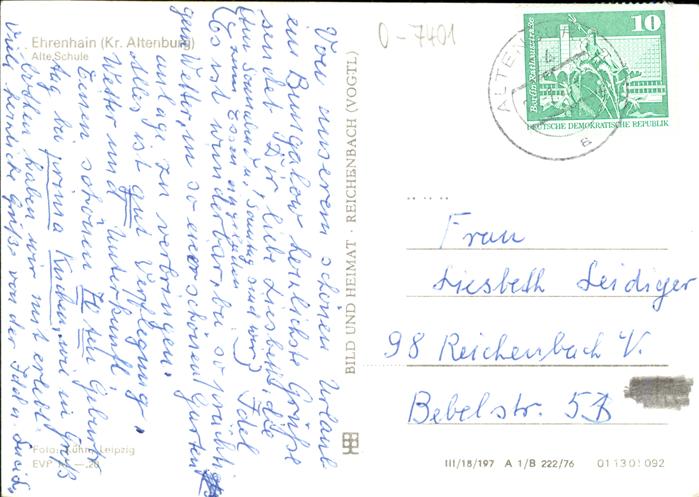 Ehrenhain (Kr. Altenburg)
Alte Schule
Von unserem schönen Urlaub
ein Bungalow herzlichste Grüße
sendet Dir liebe Liesbeth, die
Idel
(Am Sonnabend u. Sonntag sind wir
zum Essen
Es ist wunderbar, bei so prächtig
gutem Wetter, in so einer schönen Garten
anlage zu verbringen.
Alles ist gut Verpflegung,
Wetter und Unterkunft.
Euren schönen Geburts
tag bei prima Kuchen, wie in
haben wir mit erlebt.
Viele herzliche Grüße von der Idel u.
Foto: Kühn, Leipzig
EVP
BILD UND HEIMAT · REICHENBACH (VOGTL)
0-7401
ALTENBURG
10
Berlin, Rathausstraße
DEUTSCHE DEMOKRATISCHE REPUBLIK
a
Frau
Liesbeth Leidiger
98 Reichenbach V.
Bebelstr. 51
III/18/197 A 1/B 222/76 01 13 01 092